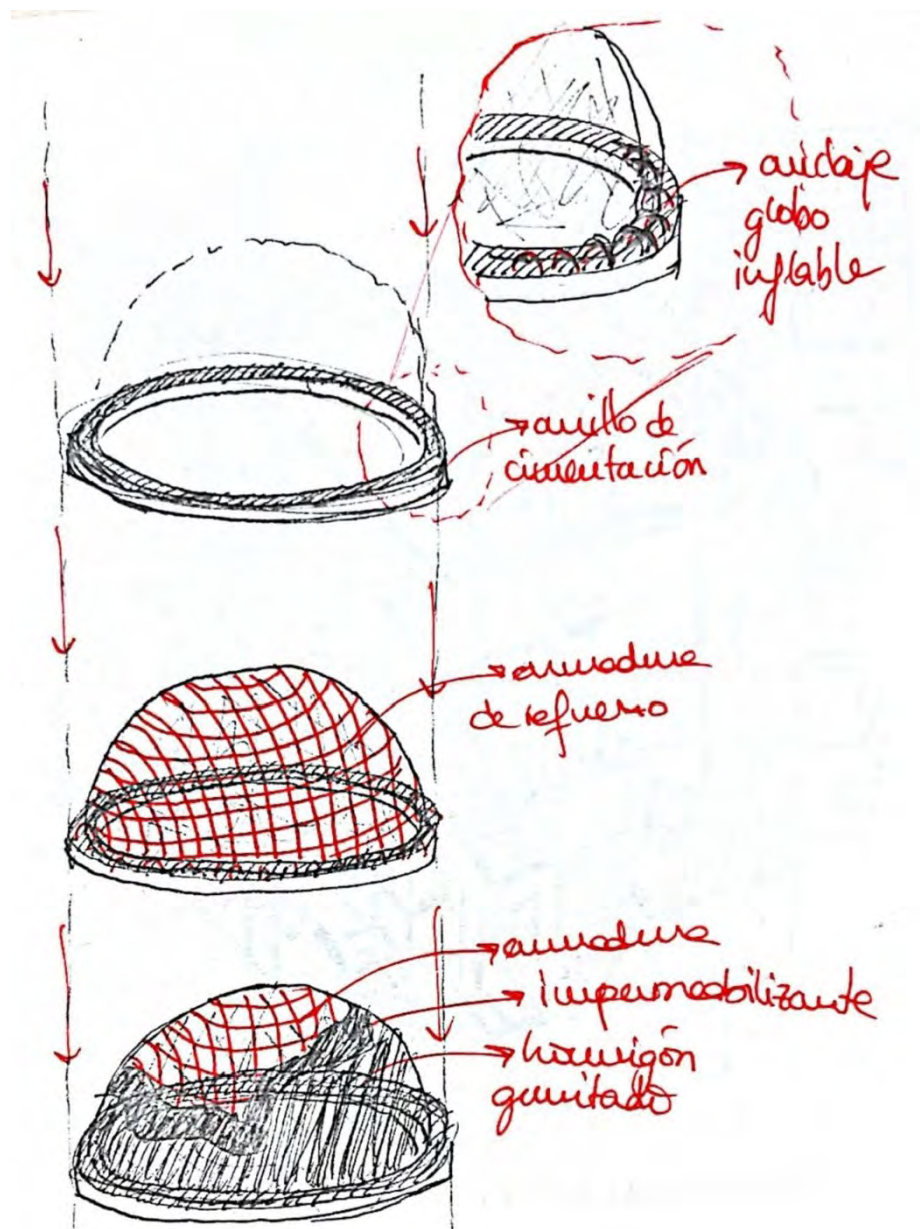 anclaje
globo
inflable
anillo de
cimentación
armadura
de refuerzo
armadura
impermeabilizante
hormigón
gunitado